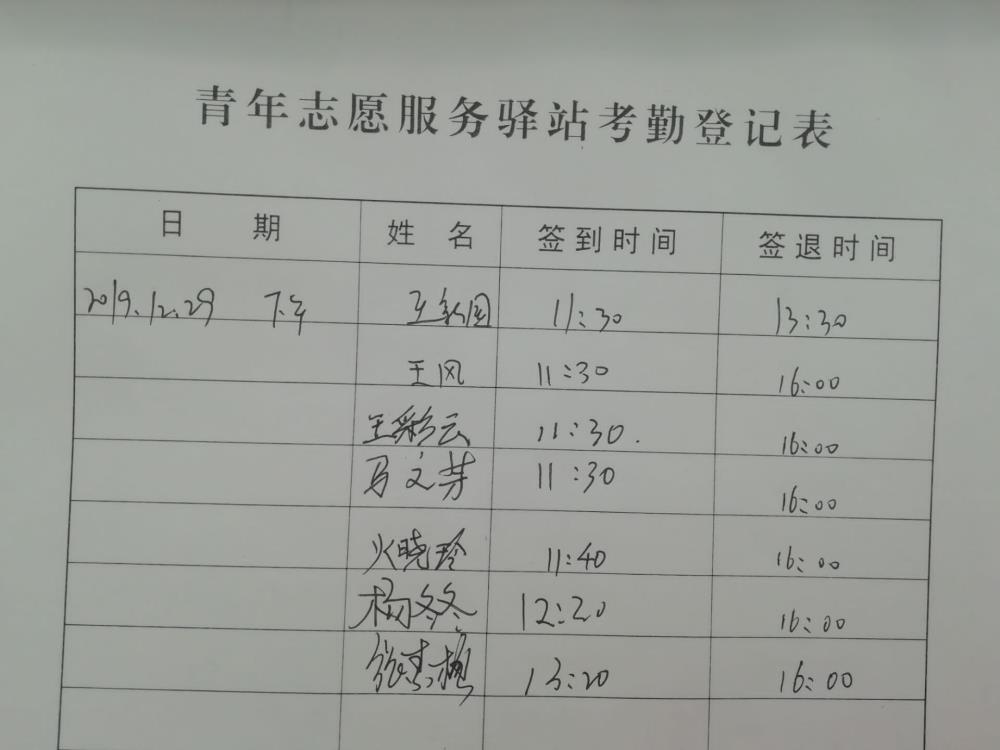 青年志愿服务驿站考勤登记表
日 期 姓 名 签到时间 签退时间
2019.12.29 下午 王 11:30 13:30
王风 11:30 16:00
王彩云 11:30. 16:00
马文芽 11:30 16:00
火晓玲 11:40 16:00
杨冬冬 12:20 16:00
13:20 16:00